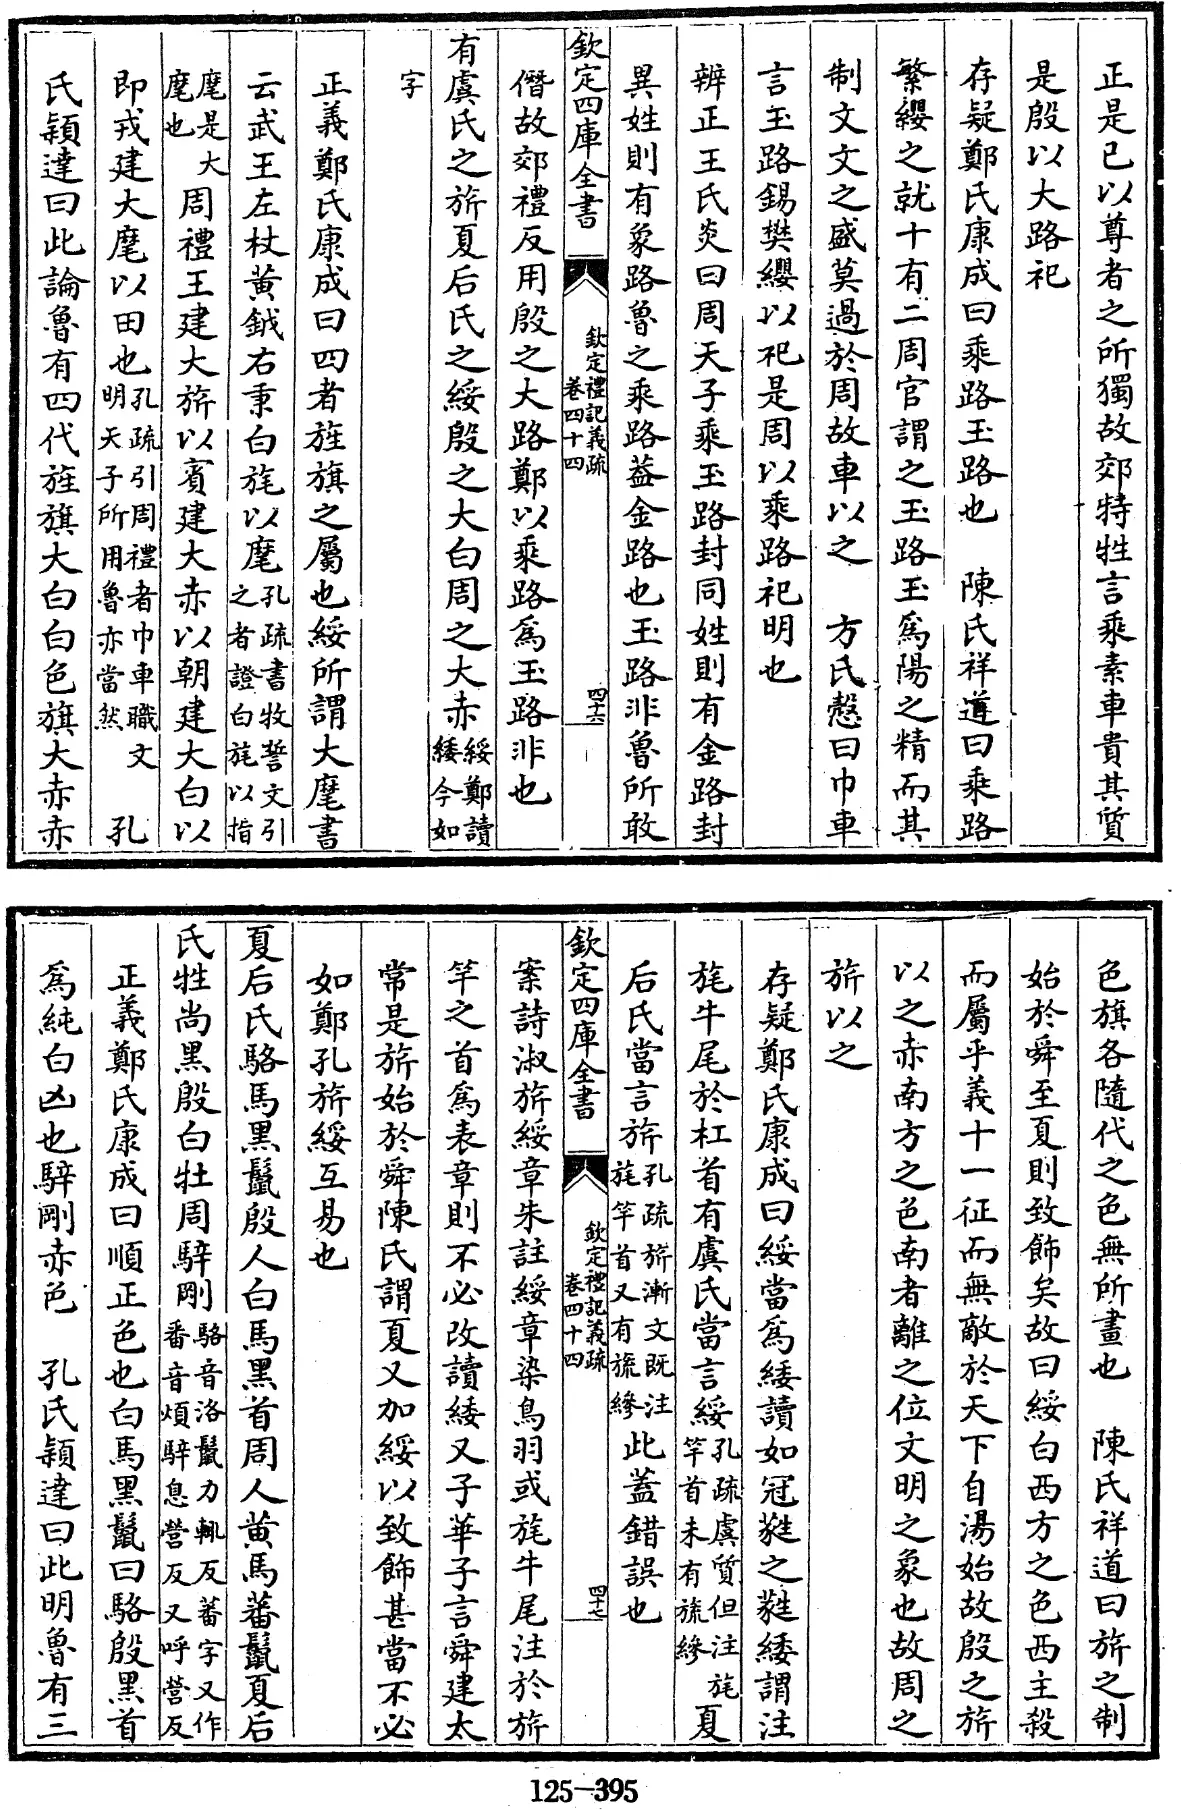 正是已以尊者之所獨故郊特牲言乘素車貴其質
是殷以大路祀
存疑鄭氏康成曰乘路玉路也　陳氏祥道曰乘路
繁纓之就十有二周官謂之玉路玉為陽之精而其
制文文之盛莫過於周故車以之　方氏慤曰巾車
言玉路錫樊纓以祀是周以乘路祀明也
辨正王氏炎曰周天子乘玉路封同姓則有金路封
異姓則有象路魯之乘路葢金路也玉路非魯所敢
欽定四庫全書　欽定禮記義疏　卷四十四　四十六
僭故郊禮反用殷之大路鄭以乘路為玉路非也
有虞氏之旂夏后氏之綏殷之大白周之大赤綏鄭讀緌今如
字
正義鄭氏康成曰四者旌旗之屬也綏所謂大麾書
云武王左杖黃鉞右秉白旄以麾孔疏書牧誓文引之者證白旄以指
麾是大麾也周禮王建大旂以賓建大赤以朝建大白以
即戎建大麾以田也孔疏引周禮者巾車職文明天子所用魯亦當然　孔
氏穎達曰此論魯有四代旌旗大白白色旗大赤赤
色旗各隨代之色無所畫也　陳氏祥道曰旂之制
始於舜至夏則致飾矣故曰綏白西方之色西主殺
而屬乎義十一征而無敵於天下自湯始故殷之旂
以之赤南方之色南者離之位文明之象也故周之
旂以之
存疑鄭氏康成曰綏當為緌讀如冠蕤之蕤緌謂注
旄牛尾於杠首有虞氏當言綏孔疏虞質但注旄竿首未有旒縿夏
后氏當言旂孔疏旂漸文既注旄竿首又有旒縿此蓋錯誤也
欽定四庫全書　欽定禮記義疏　卷四十四　四十七
案詩淑旂綏章朱註綏章染鳥羽或旄牛尾注於旂
竿之首為表章則不必改讀緌又子華子言舜建太
常是旂始於舜陳氏謂夏又加綏以致飾甚當不必
如鄭孔旂綏互易也
夏后氏駱馬黑鬛殷人白馬黑首周人黃馬蕃鬛夏后
氏牲尚黑殷白牡周騂剛駱音洛鬛力輒反蕃字又作番音煩騂息營反又呼營反
正義鄭氏康成曰順正色也白馬黑鬛曰駱殷黑首
為純白凶也騂剛赤色　孔氏穎達曰此明魯有三
125-395